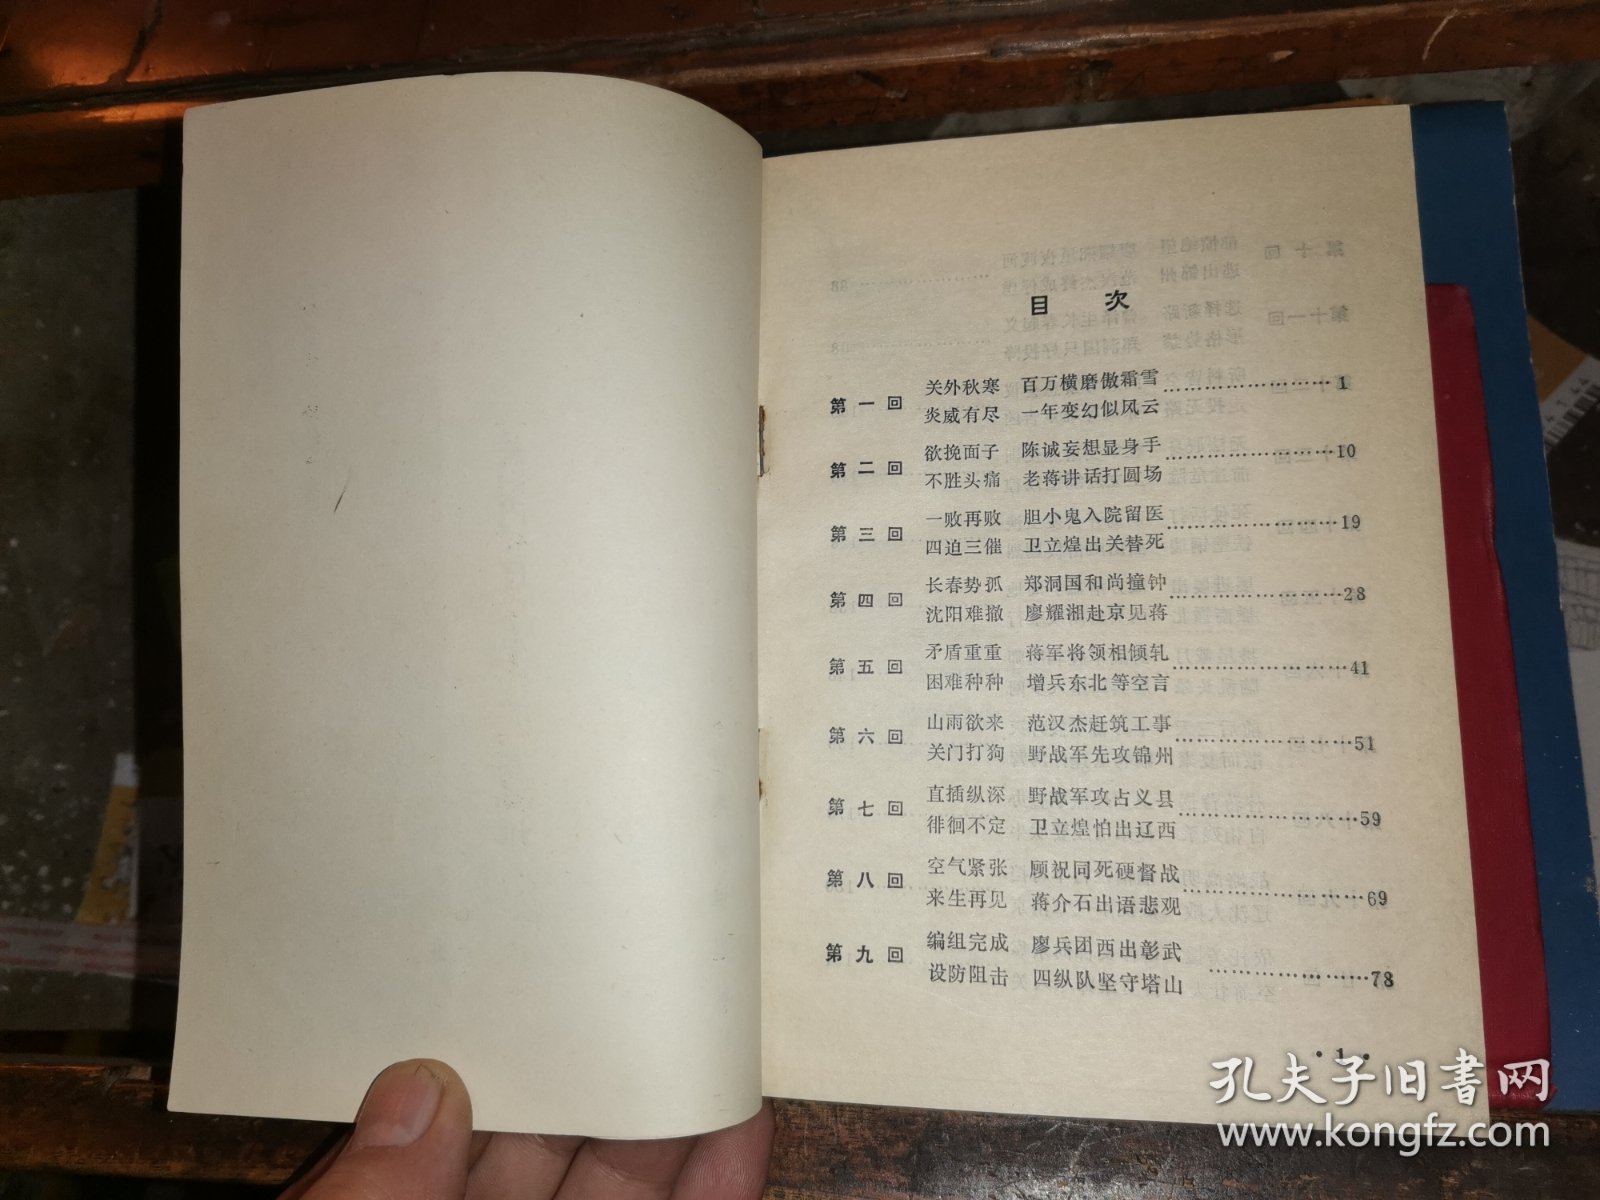 目 次
第一回 关外秋寒 百万横磨傲霜雪……………………1
炎威有尽 一年变幻似风云
第二回 欲挽面子 陈诚妄想显身手……………………10
不胜头痛 老蒋讲话打圆场
第三回 一败再败 胆小鬼入院留医……………………19
四迫三催 卫立煌出关替死
第四回 长春势孤 郑洞国和尚撞钟……………………28
沈阳难撤 廖耀湘赴京见蒋
第五回 矛盾重重 蒋军将领相倾轧……………………41
困难种种 增兵东北等空言
第六回 山雨欲来 范汉杰赶筑工事……………………51
关门打狗 野战军先攻锦州
第七回 直插纵深 野战军攻占义县……………………59
徘徊不定 卫立煌怕出辽西
第八回 空气紧张 顾祝同死硬督战……………………69
来生再见 蒋介石出语悲观
第九回 编组完成 廖兵团西出彰武……………………78
设防阻击 四纵队坚守塔山
• 1 •
孔夫子旧书网
www.kongfz.com